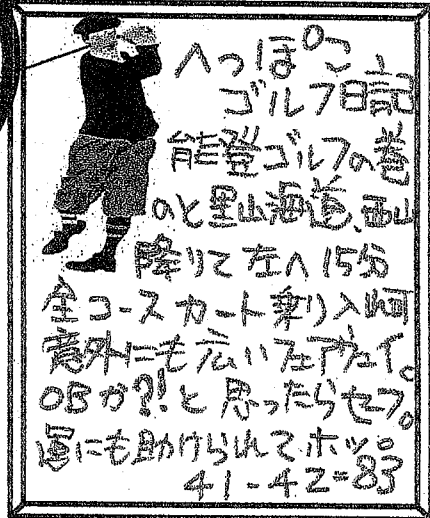 へっぽこ
ゴルフ日記
能登ゴルフの巻
のと里山海道、西山
降りて左へ15分
全コースカート乗り入れ可
意外にも広いフェアウェイ。
OBか?!と思ったらセーフ。
運にも助けられてホッ。
41-42=83